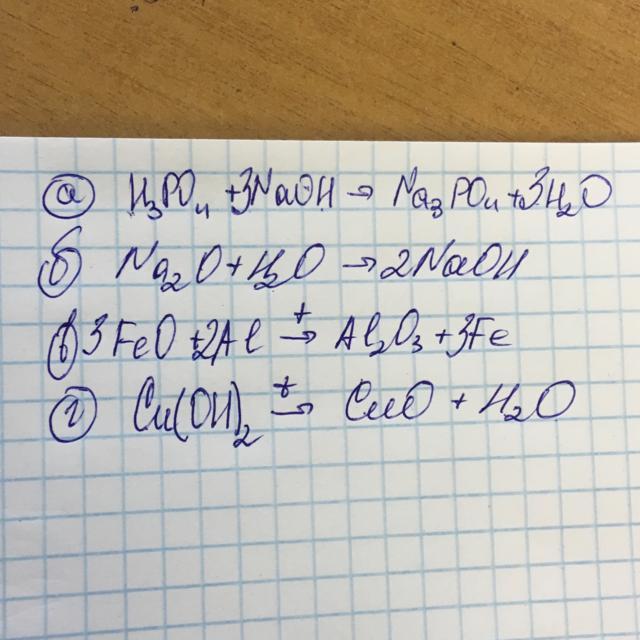 а) H₃PO₄ + 3NaOH → Na₃PO₄ + 3H₂O
б) Na₂O + H₂O → 2NaOH
в) 3FeO + 2Al t→ Al₂O₃ + 3Fe
г) Cu(OH)₂ t→ CuO + H₂O